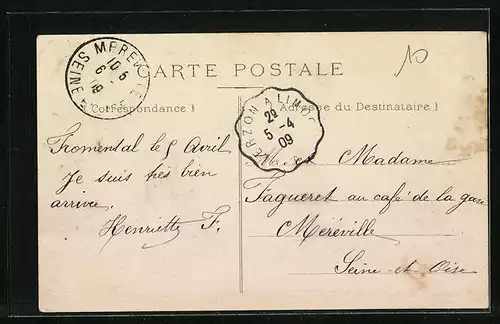 MEREVILLE
SEINE
10-5
6-4
09
CARTE POSTALE
(Correspondance)
(Adresse du Destinataire)
VIERZON A LIMOG
2º
5-4
09
10
Fromental le 5 Avril
Je suis très bien
arrivée.
Henriette F.
M. et Madame
Fagueret au café de la gare
Méréville
Seine-et-Oise